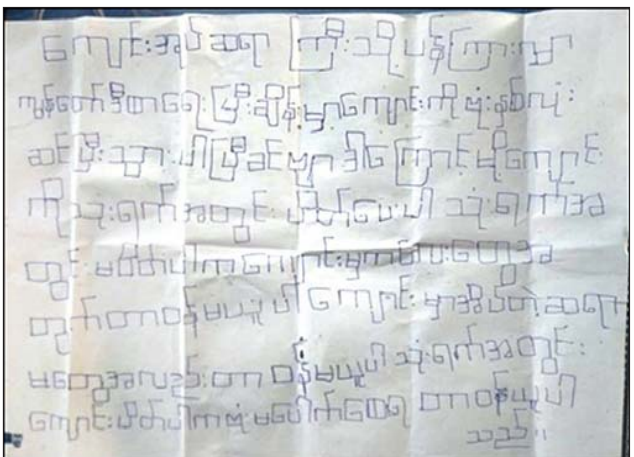 ကျောင်းအုပ်ဆရာ ကြီးသို့ပန်ကြားလွှာ
ကျွန်တော်ဒီစာရေးပြီးချိန်မှာကျောင်းကိုဗုံးနှစ်လုံး
ဆင်ပြီးသွားပါပြီခင်ဗျာ ဒါကြောင့်မို့ကျောင်း
ကိုသုံးရက်အတွင်း ပိတ်ပေးပါ သုံးရက်အ
တွင်းမပိတ်ပါကကျောင်းမှကလေးတွေအ
တွက်တာဝန်မယူပါ ကျောင်းမှာအိပ်တဲ့ဆရာ
မတွေအလည်းတာဝန်မယူပါ သုံးရက်အတွင်း
ကျောင်းပိတ်ပါကဗုံးမပေါက်စေရ တာဝန်ယူပါ
သည်။